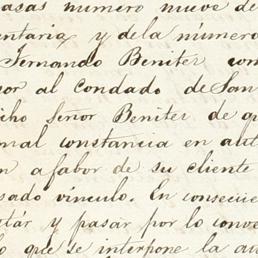 asas numero nueve de
entaria, y de la número
Fernando Beniter con
sor al Condado de San
cho Señor Beniter de qu
mal constancia en aut
n a fabor de su cliente
sado vinculo. En consecue
otár y pasar por lo conve
o que se interpone la au